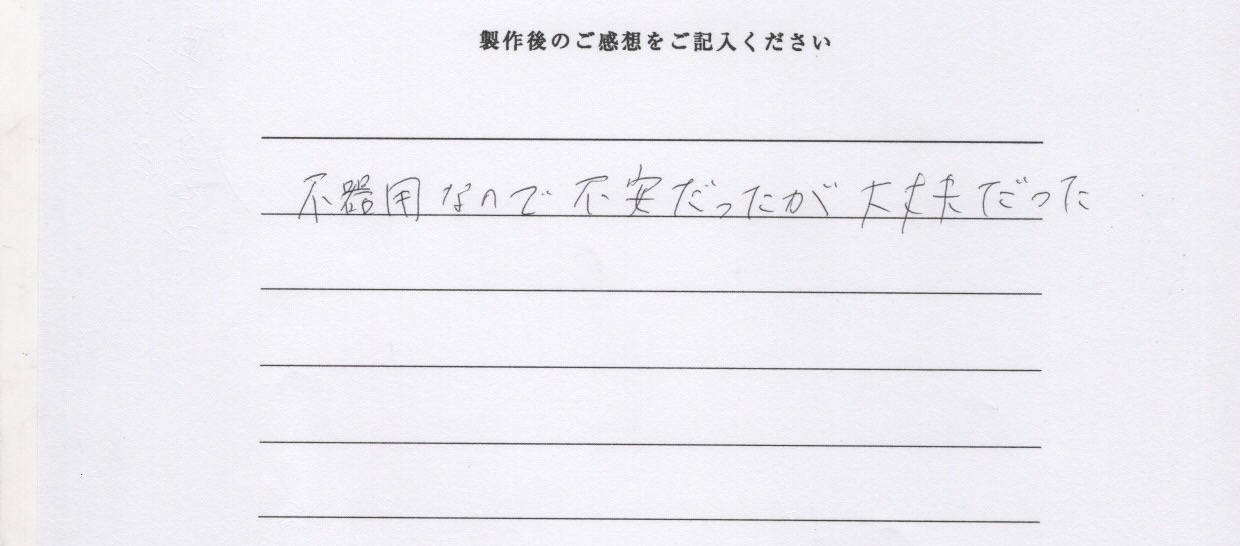 製作後のご感想をご記入ください
不器用なので不安だったが大丈夫だった